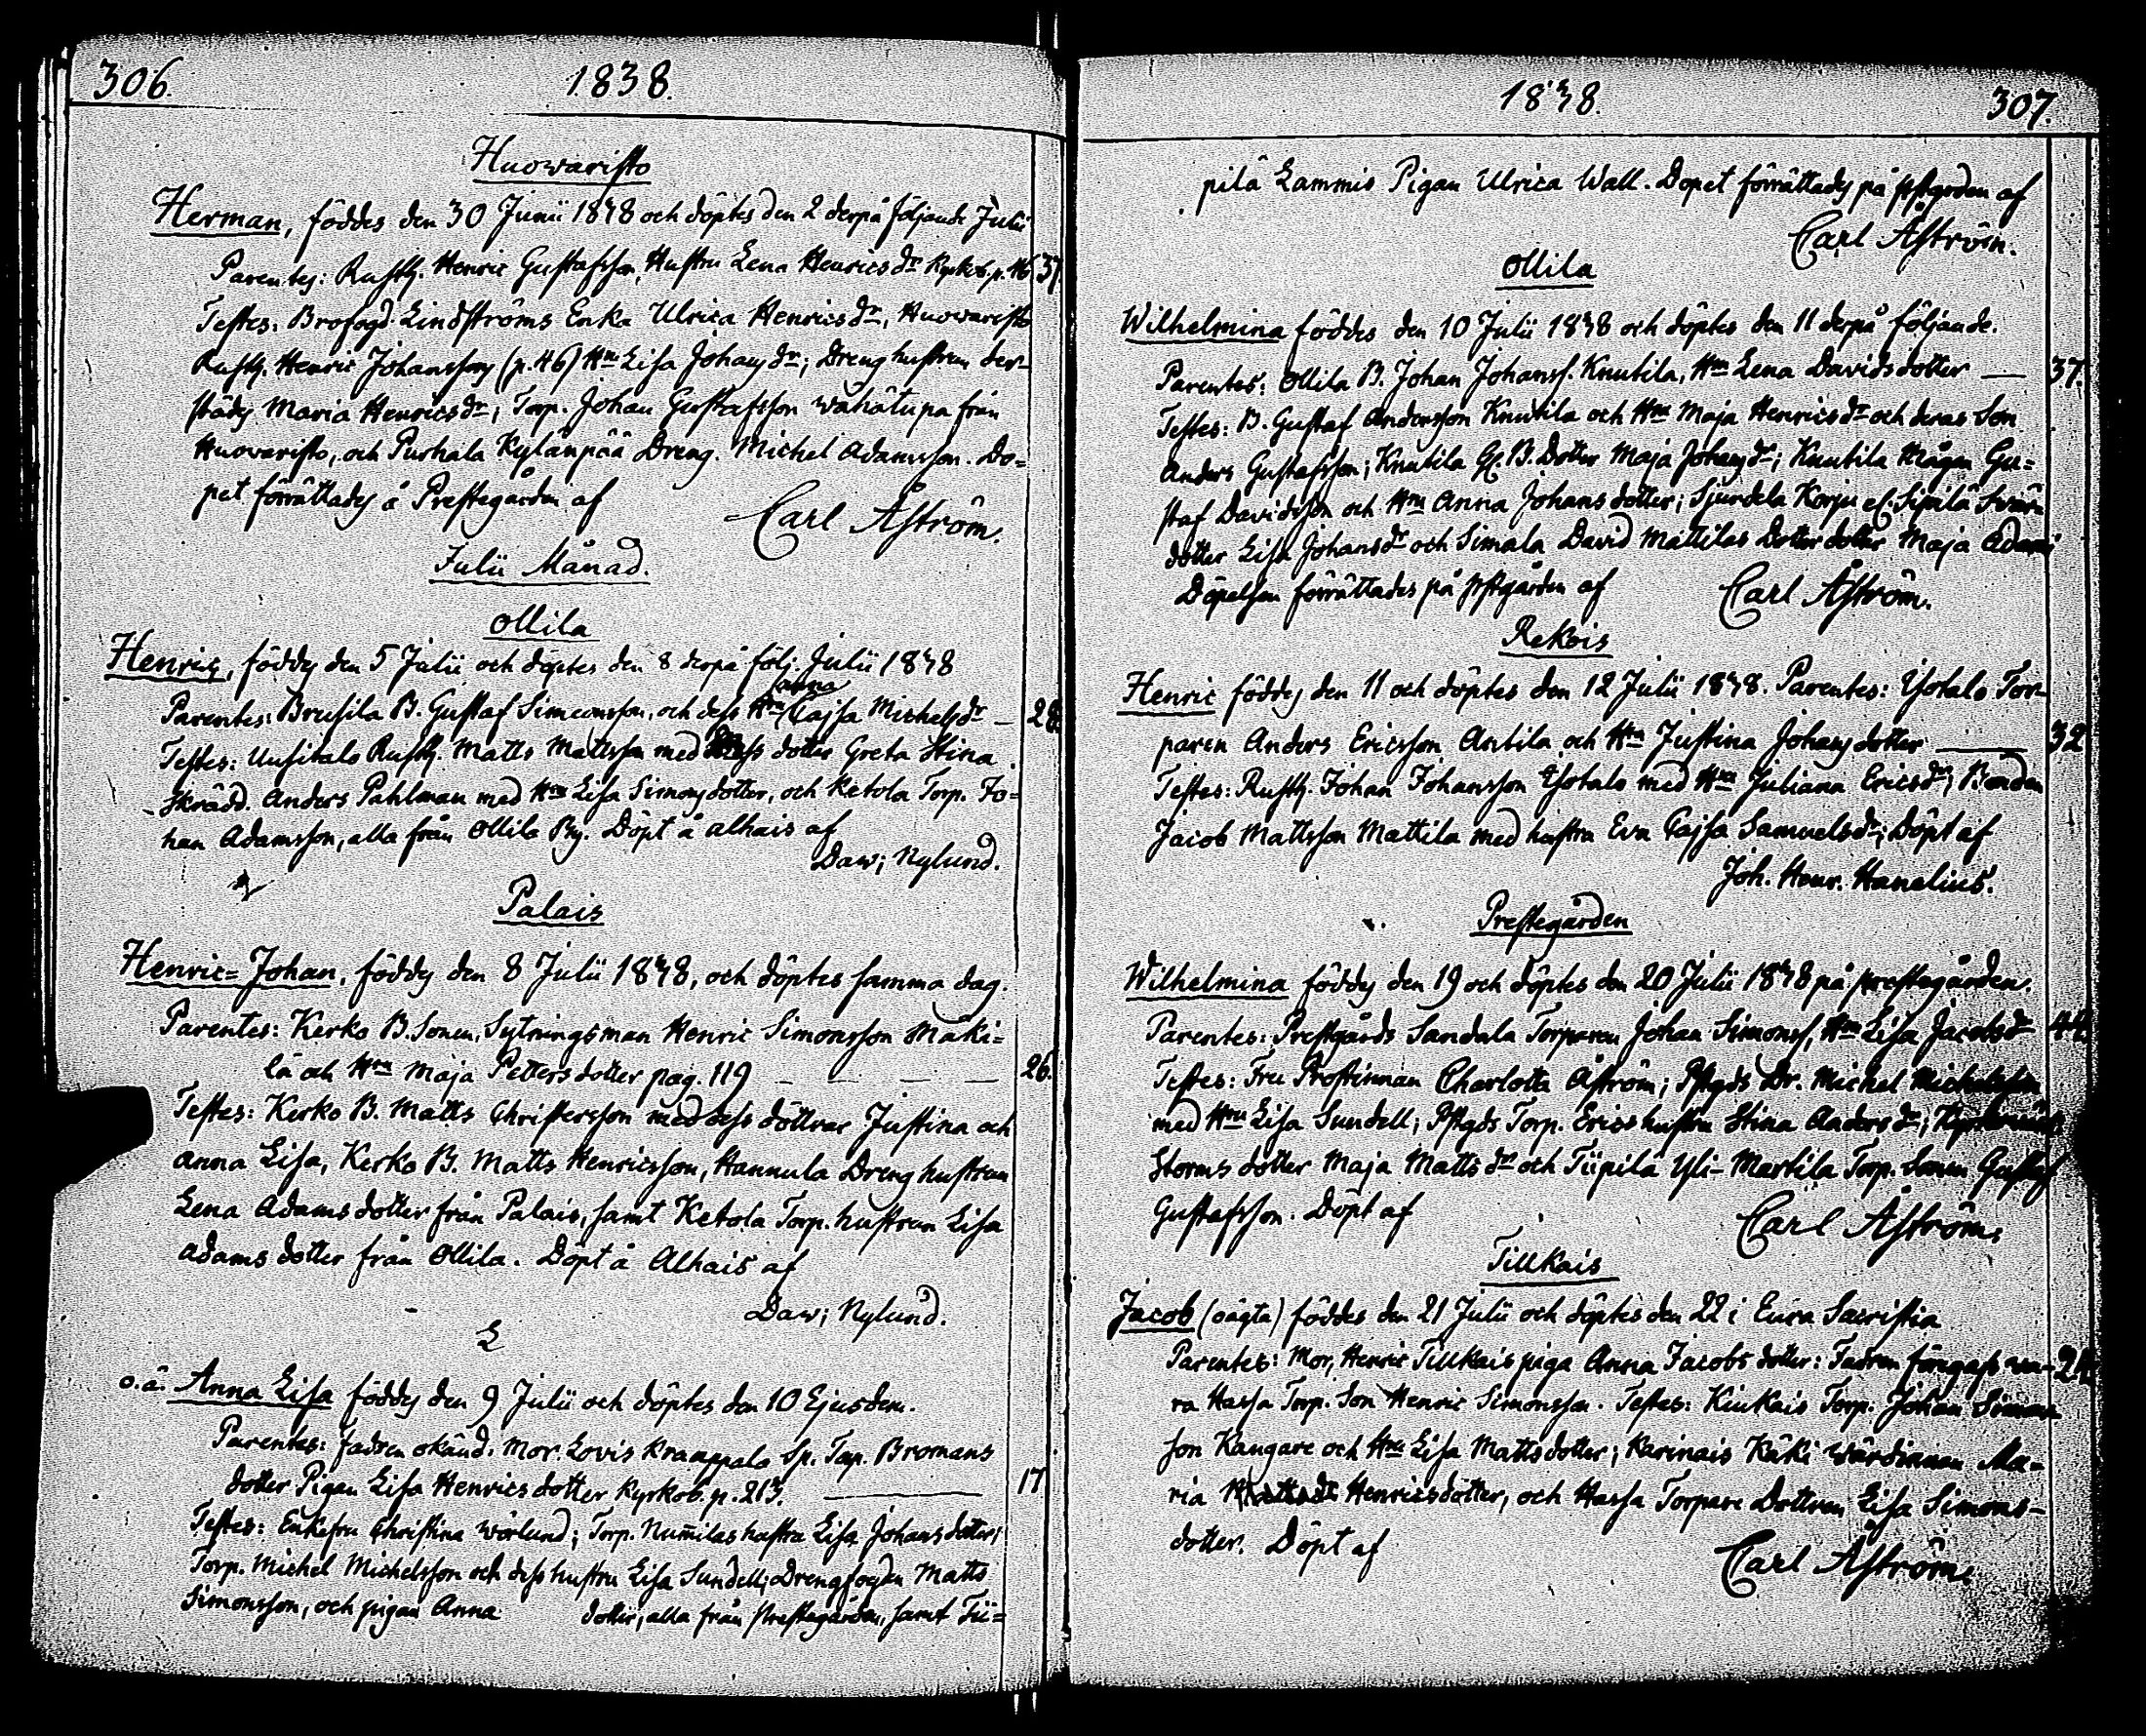 306.
1838.
Huowaristo
Herman, föddes den 30 Junii 1838 och döptes den 2 derpå följande Julii
Parentes: Rusth. Henric Gustafsson, Hustru Lena Henricsdr Kyrkob. p. 46 37
Testes: Brofogd. Lindströms Enka Ulrica Henricsdr, Huowaristo
Rusth. Henric Johanssons (p. 46) Hru Lisa Johansdr; Dreng hustrun der-
städs Maria Henricsdr; Torp. Johan Gustafsson Wähätupa från
Huowaristo, och Purhala Kylänpää Dreng. Michel Adamsson. Do=
pet förrättades å Prestegården af
Carl Åström.
Julii Månad.
Ollila
Henric, föddes den 5 Julii och döptes den 8 derpå följ. Julii 1838
Parentes: Brusila B. Gustaf Simeonsson, och dess Hru Cajsa Michelsdr — 28
Testes: Uusitalo Rusth. Matts Mattsson med dess dotter Greta Stina.
Skrädd. Anders Pahlman med Hru Lisa Simonsdotter, och Ketola Torp. Jo=
han Adamsson, alla från Ollila By. Döpt å Alhais af
Daw; Nylund.
Palais
Henric=Johan, föddes den 8 Julii 1838, och döptes samma dag.
Parentes: Kerko B. Sonen, Sytningsman Henric Simonsson Mäki=
lä och Hru Maja Petters dotter pag. 119 — — — — 26.
Testes: Kerko B. Matts Christersson med dess döttrar Justina och
Anna Lisa, Kerko B. Matts Henricsson, Hannula Dreng hustrun
Lena Adams dotter från Palais, samt Ketola Torp. hustrun Lisa
Adams dotter från Ollila. Döpt å Alhais af
Daw; Nylund.
o.ä. Anna Lisa föddes den 9 Julii och döptes den 10 Ejusdem.
Parentes: fadren okänd: Mor: Lovis Kraappala Sp. Torp. Bromans
dotter Pigan Lisa Henrics dotter Kyrkob. p. 213. — 17
Testes: Enkefru Christina Wörlund; Torp. Numilas hustru Lisa Johans dotter;
Torp. Michel Michelsson och dess hustru Lisa Sundell; Drengfogden Matts
Simonsson, och pigan Anna dotter, alla från Prestegården, samt Tii=
1838.
307.
pilä Lammis Pigan Ulrica Wall. Dopet förrättades på pstgården af
Carl Åström.
Ollila
Wilhelmina föddes den 10 Julii 1838 och döptes den 11 derpå följande.
Parentes: Ollila B. Johan Johanss. Knutila, Hru Lena Davids dotter — 37.
Testes: B. Gustaf Andersson Knutila och Hru Maja Henricsdr och deras Son
Anders Gustafsson; Knutila Gl. B. Dotter Maja Johansdr; Knutila Mågen Gu=
staf Davidsson och Hru Anna Johans dotter; Sjundela Korju el. Sipilä Svär
dotter Lisa Johansdr och Simala David Mattilas Dotter dotter Maja Adams
Döpelsen förrättades på pstgården af
Carl Åström.
Rekois
Henric föddes den 11 och döptes den 12 Julii 1838. Parentes: Isotalo Tor-
paren Anders Ericsson Antila och Hru Justina Johans dotter — 32
Testes: Rusth. Johan Johansson Isotalo med Hru Juliana Ericsdr; Bonden
Jacob Mattsson Mattila med hustru Eva Cajsa Samuelsdr; Döpt af
Joh. Henr. Hanelius.
Prestegården
Wilhelmina föddes den 19 och döptes den 20 Julii 1838 på prestegården.
Parentes: Prestgårds Sandala Torparen Johan Simonss, Hru Lisa Jacobsdr 44
Testes: Fru Prostinnan Charlotta Åström; Pstgds Dr. Michel Michelsson
med Hru Lisa Sundell; Pstgds Torp. Erics hustru Stina Andersdr;
Storms dotter Maja Mattsdr och Tiipilä Yli-Martila Torp. Sonen Gustaf
Gustafsson. Döpt af
Carl Åström.
Tillkais
Jacob (oägta) föddes den 21 Julii och döptes den 22 i Eura Sacristia
Parentes: Mor, Henric Tillkais piga Anna Jacobs dotter: Fadren föregafs wa- 24
ra Hassa Torp. Son Henric Simonsson. Testes: Kiukais Torp. Johan Simons
son Kangare och Hru Lisa Matts dotter; Karinais Käki Wärdinnan Ma=
ria Henrics dotter, och Hassa Torpare Dottren Lisa Simons-
dotter. Döpt af
Carl Åström.